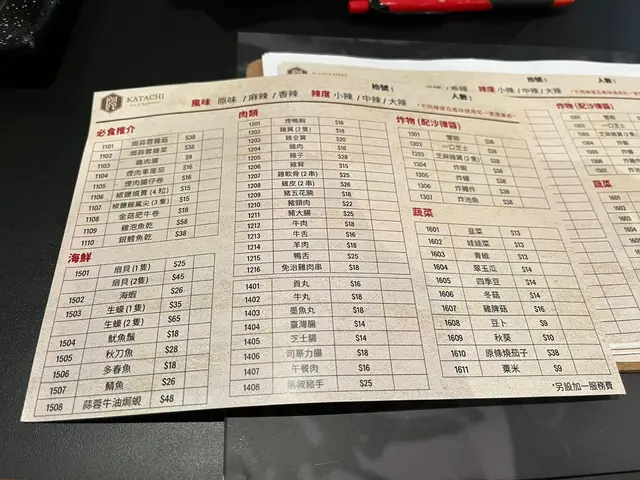 KATACHI
風味 原味 / 麻辣 / 香辣 辣度 小辣 / 中辣 / 大辣
枱號：
人數：
必食推介
1101 焗蒜蓉雞菇 $38
1102 焗蒜蓉雞菜 $38
1103 雞肉腸 $9
1104 煙肉車厘茄 $16
1105 煙肉腸仔卷 $16
1106 椒鹽燒賣 (4 粒) $15
1107 椒鹽雞翼尖 (3 隻) $15
1108 金菇肥牛卷 $18
1109 雞泡魚乾 $58
1110 銀鱈魚乾 $38
海鮮
1501 扇貝 (1 隻) $25
扇貝 (2 隻) $45
1502 海蝦 $26
1503 生蠔 (1 隻) $35
生蠔 (2 隻) $65
1504 魷魚鬚 $18
1505 秋刀魚 $28
1506 多春魚 $18
1507 鯖魚 $26
1508 蒜蓉牛油焗蜆 $48
肉類
1201 煙鴨胸 $16
1202 雞翼 (2 隻) $18
1203 雞全翼 $20
1204 雞肉 $16
1205 雞子 $28
1206 雞腎 $15
1207 雞軟骨 (2 串) $25
1208 雞皮 (2 串) $26
1209 豬五花腩 $18
1210 豬頸肉 $22
1211 豬大腸 $25
1212 牛肉 $18
1213 牛舌 $16
1214 羊肉 $18
1215 鴨舌 $25
1216 免治雞肉串 $18
1401 貢丸 $16
1402 牛丸 $18
1403 墨魚丸 $18
1404 臺灣腸 $14
1405 芝士腸 $14
1406 司華力腸 $18
1407 午餐肉 $16
1408 黑椒豬手 $25
炸物 (配沙律醬)
1301 $38
1302 一口芝士 $38
1303 芝麻雞翼 (3 隻) $38
1304 炸蝦 $38
1305 炸雞 $38
1306 炸雞件 $38
1307 炸池魚 $38
蔬菜
1601 韮菜 $13
1602 娃娃菜 $13
1603 青椒 $13
1604 翠玉瓜 $14
1605 四季豆 $14
1606 冬菇 $14
1607 雞脾菇 $16
1608 豆卜 $9
1609 秋葵 $10
1610 原條燒茄子 $38
1611 粟米 $9
*另設加一服務費
KATACHI
枱號：
人數：
辣度 小辣 / 中辣 / 大辣
炸物 (配沙律醬)
1301
1302
1303 芝麻雞翼
1304
1305
1306
1307
蔬菜
1601
1602